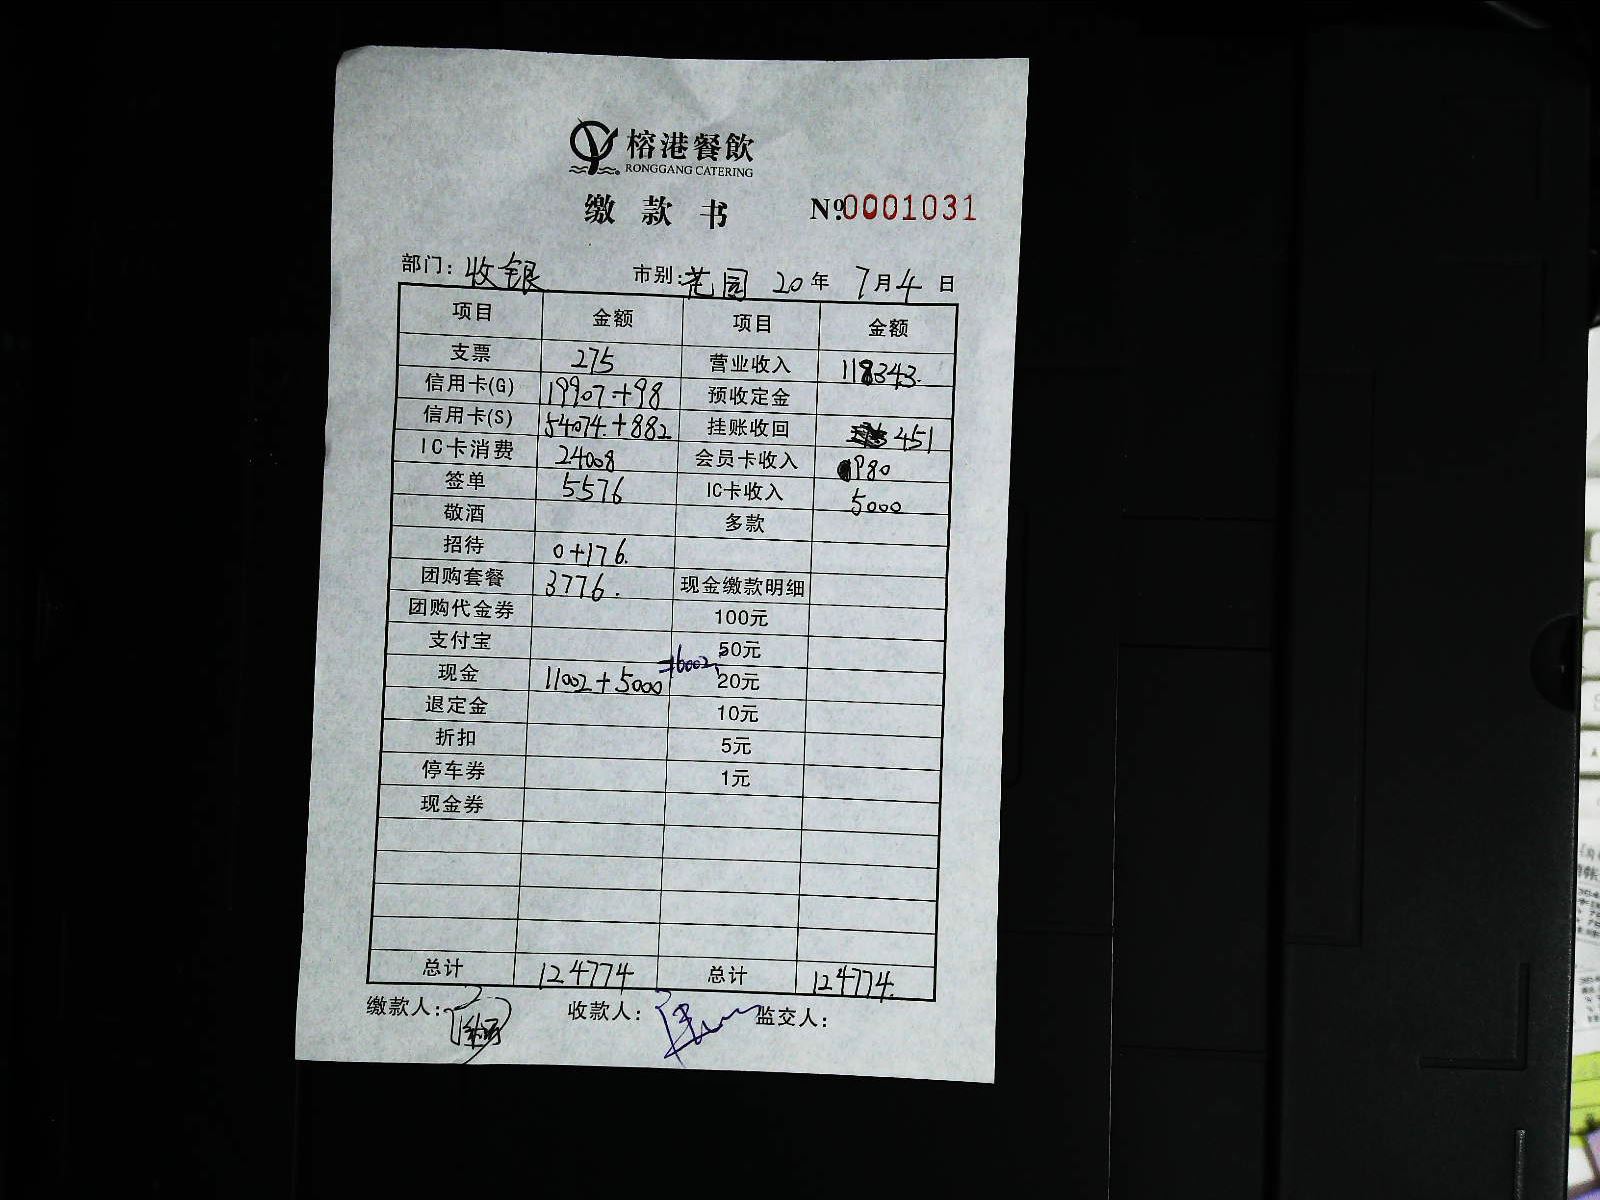 榕港餐飲
RONGGANG CATERING
缴款书 №0001031
部门: 收银 市别: 花园 20年 7月4日
项目 金额 项目 金额
支票 275 营业收入 118343.
信用卡(G) 19907.+98 预收定金
信用卡(S) 54074.+882 挂账收回 451
IC卡消费 24008 会员卡收入 980
签单 5576 IC卡收入 5000
敬酒 多款
招待 0+176.
团购套餐 3776. 现金缴款明细
团购代金券 100元
支付宝 50元
现金 11002+5000 =16002. 20元
退定金 10元
折扣 5元
停车券 1元
现金券
总计 124774 总计 124774.
缴款人: 收款人: 监交人: